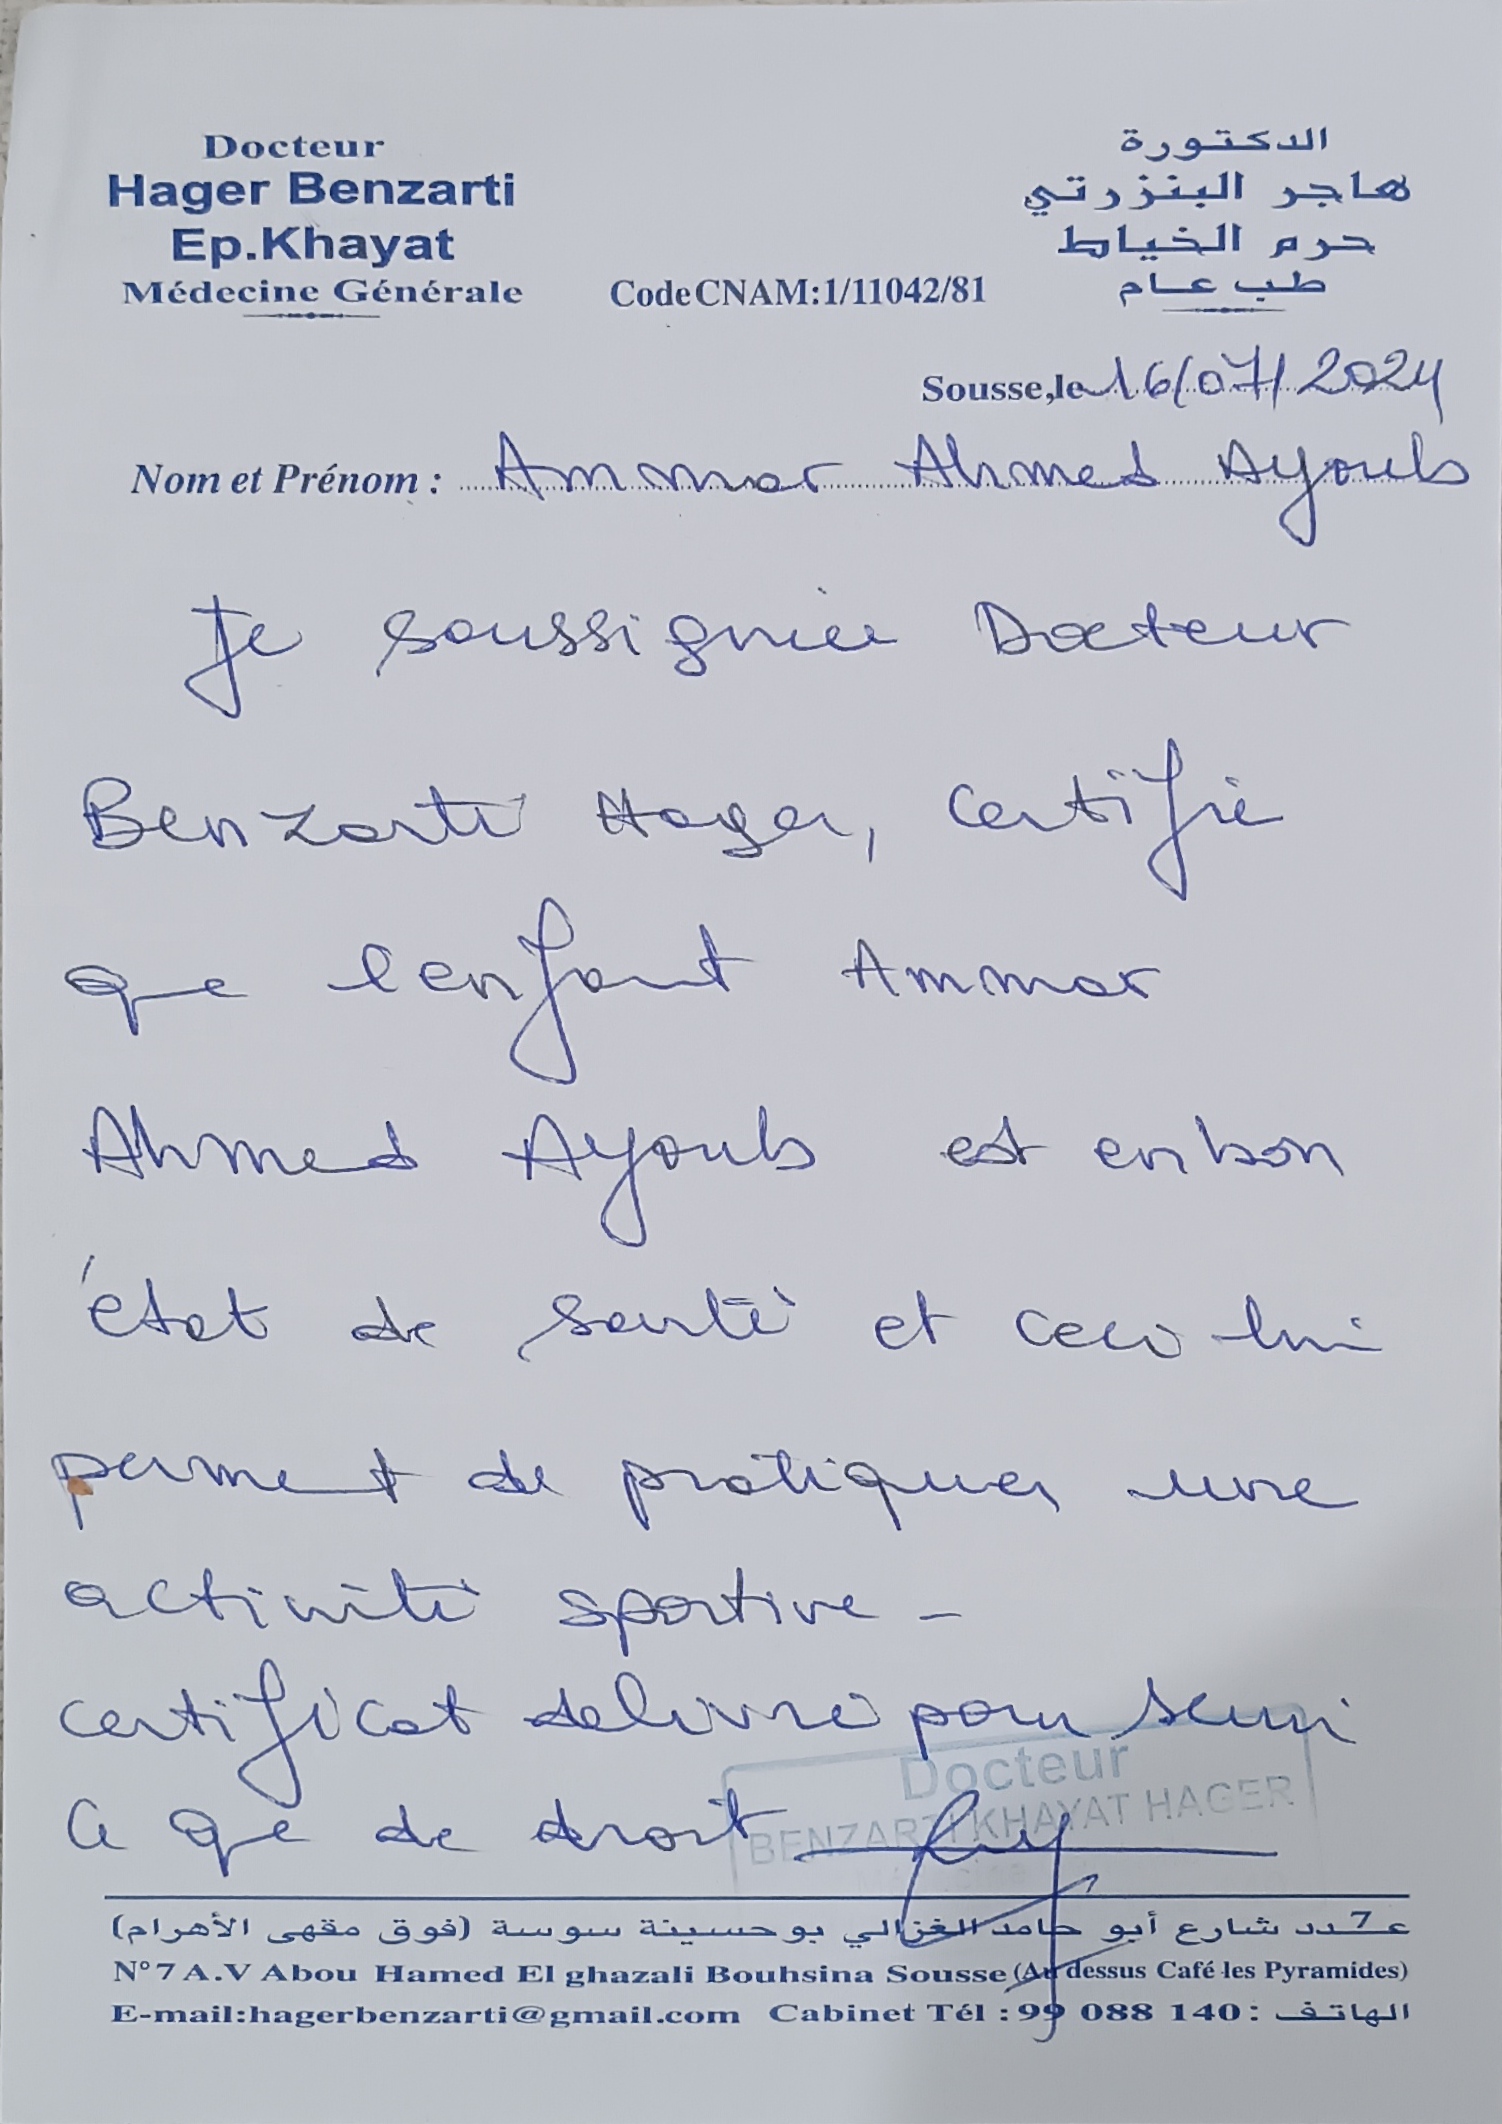 Docteur
Hager Benzarti
Ep.Khayat
Médecine Générale
الدكتورة
هاجر البنزرتي
حرم الخياط
طب عام
Code CNAM:1/11042/81
Sousse,le 16/07/2024
Nom et Prénom : Ammar Ahmed Ayoub
Je soussignée Docteur
Benzarti Hager, certifie
que l'enfant Ammar
Ahmed Ayoub est en bon
état de santé et ceci lui
permet de pratiquer une
activité sportive -
certificat delivré pour servi
a qe de droit
Docteur
BENZARTI KHAYAT HAGER
عـ7ـدد شارع أبو حامد الغزالي بوحسينة سوسة (فوق مقهى الأهرام)
N°7 A.V Abou Hamed El ghazali Bouhsina Sousse (Au dessus Café les Pyramides)
E-mail:hagerbenzarti@gmail.com Cabinet Tél : 99 088 140 : الهاتف